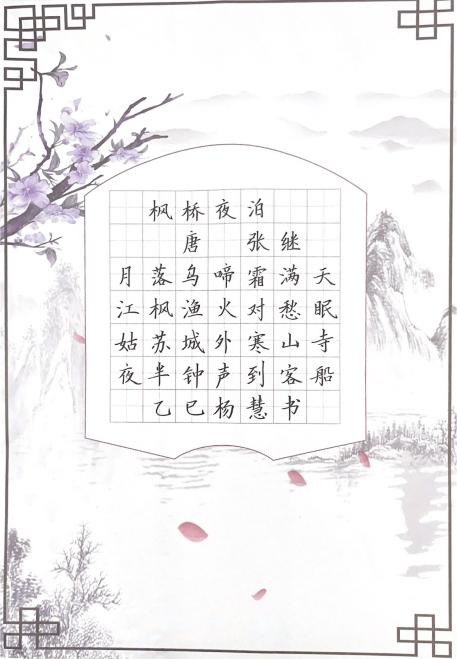 枫桥夜泊
唐 张继
月落乌啼霜满天
江枫渔火对愁眠
姑苏城外寒山寺
夜半钟声到客船
乙巳杨慧书